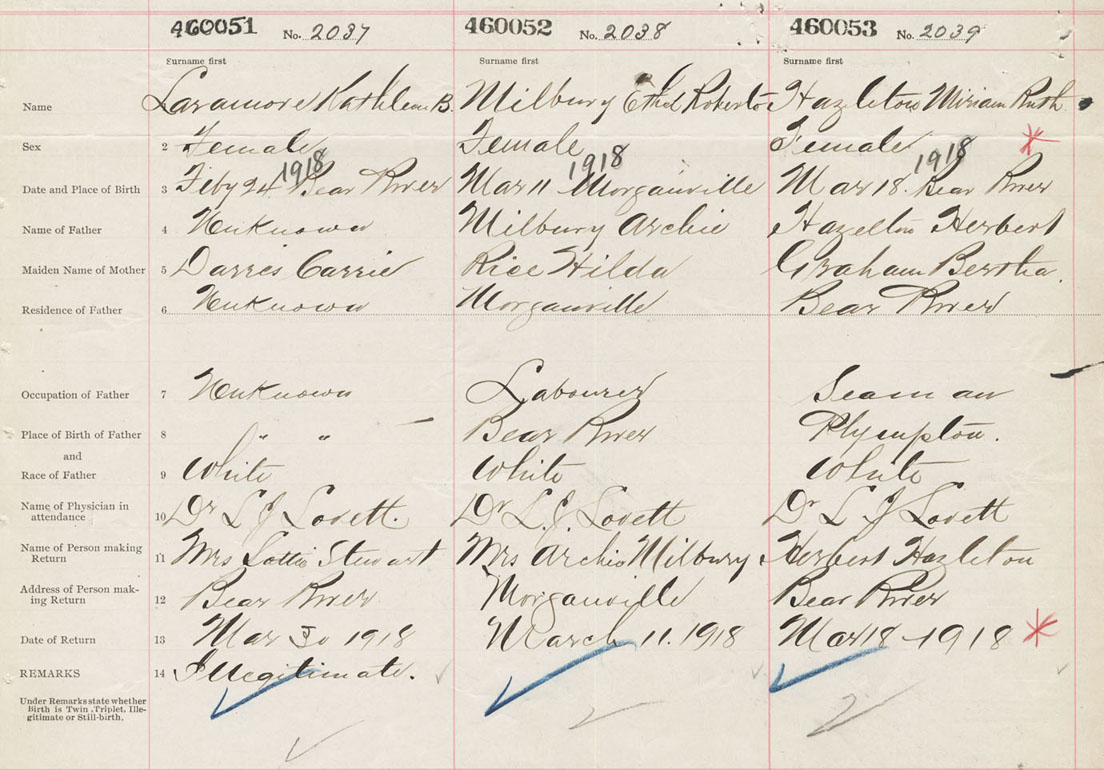 460051 No. 2037 460052 No. 2038 460053 No. 2039
Surname first Surname first Surname first
Name Laramore Kathleen B. Milbury Ethel Roberta Hazleton Miriam Ruth
Sex 2 Female Female Female
1918 1918 1918
Date and Place of Birth 3 Feby 24 Bear River Mar 11 Morganville Mar 18. Bear River
Name of Father 4 Unknown Milbury Archie Hazelton Herbert
Maiden Name of Mother 5 Darres Carrie Rice Hilda Graham Bertha
Residence of Father 6 Unknown Morganville Bear River
Occupation of Father 7 Unknown Labourer Seaman
Place of Birth of Father 8 " " Bear River Plympton.
and
Race of Father 9 White White White
Name of Physician in
attendance 10 Dr L J Lovett. Dr L. J. Lovett Dr L J Lovett
Name of Person making
Return 11 Mrs Lottie Stewart Mrs Archie Milbury Herbert Hazleton
Address of Person mak-
ing Return 12 Bear River Morganville Bear River
Date of Return 13 Mar 30 1918 March 11. 1918 Mar 18 - 1918
REMARKS 14 Illegitimate.
Under Remarks state whether
Birth is Twin, Triplet, Ille-
gitimate or Still-birth.